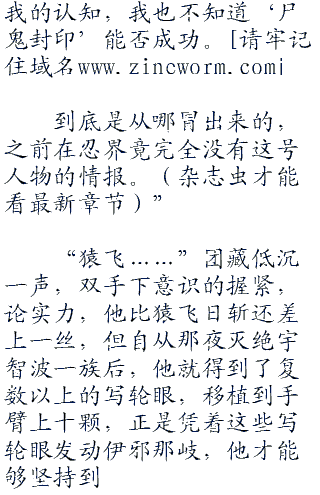 我的认知，我也不知道‘尸
鬼封印’能否成功。[请牢记
住域名www.zincworm.com|
到底是从哪冒出来的，
之前在忍界竟完全没有这号
人物的情报。（杂志虫才能
看最新章节）”
“猿飞……”团藏低沉
一声，双手下意识的握紧，
论实力，他比猿飞日斩还差
上一丝，但自从那夜灭绝宇
智波一族后，他就得到了复
数以上的写轮眼，移植到手
臂上十颗，正是凭着这些写
轮眼发动伊邪那岐，他才能
够坚持到